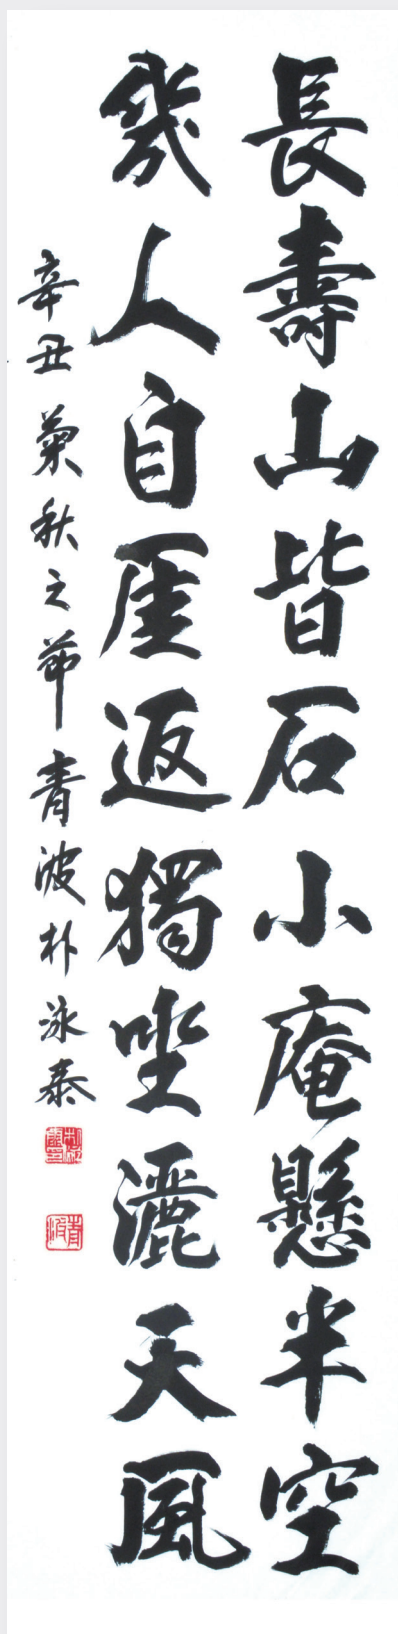 長壽山皆石小庵懸半空
幾人自厓返獨坐灑天風
辛丑菊秋之節青波朴泳泰